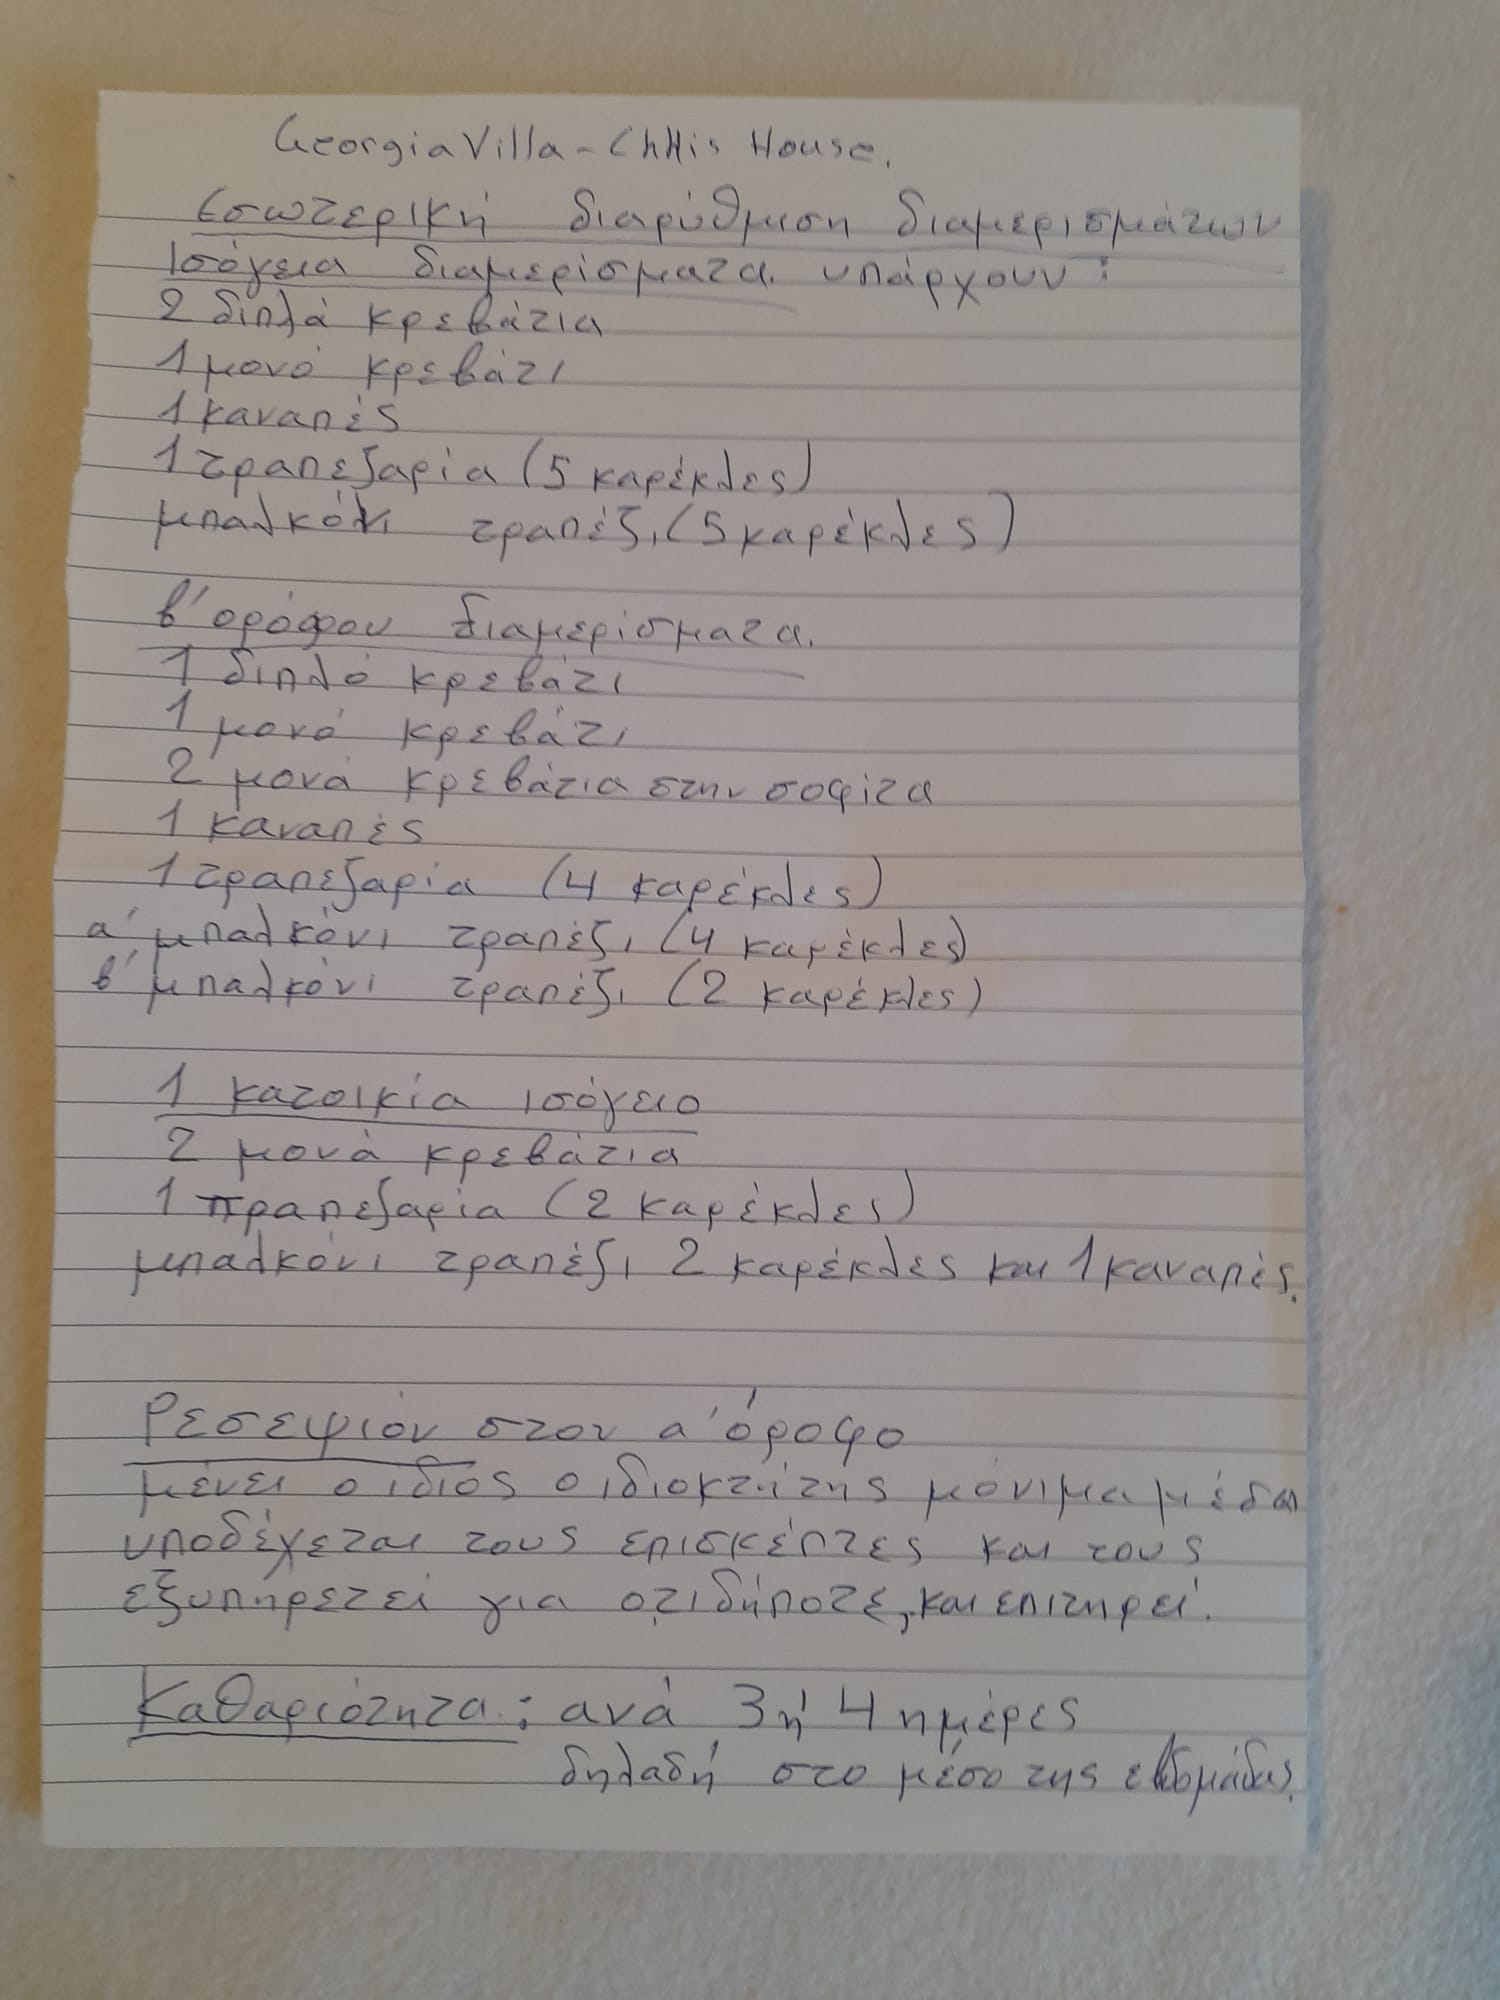 Georgia Villa - Chllis House.
Εσωτερική διαρύθμιση διαμερισμάτων
Ισόγεια διαμερίσματα υπάρχουν:
2 διπλά κρεβάτια
1 μονό κρεβάτι
1 καναπές
1 τραπεζαρία (5 καρέκλες)
μπαλκόνι τραπέζι (5 καρέκλες)
β' ορόφου διαμερίσματα.
1 διπλό κρεβάτι
1 μονό κρεβάτι
2 μονά κρεβάτια στην σοφίτα
1 καναπές
1 τραπεζαρία (4 καρέκλες)
α' μπαλκόνι τραπέζι (4 καρέκλες)
β' μπαλκόνι τραπέζι (2 καρέκλες)
1 κατοικία ισόγειο
2 μονά κρεβάτια
1 τραπεζαρία (2 καρέκλες)
μπαλκόνι τραπέζι 2 καρέκλες και 1 καναπές.
Ρεσεψιόν στον α' όροφο
μένει ο ίδιος ο ιδιοκτήτης μόνιμα
υποδέχεται τους επισκέπτες και τους
εξυπηρετεί για οτιδήποτε, και επιτηρεί.
Καθαριότητα: ανά 3 ή 4 ημέρες
δηλαδή στο μέσο της εβδομάδας.